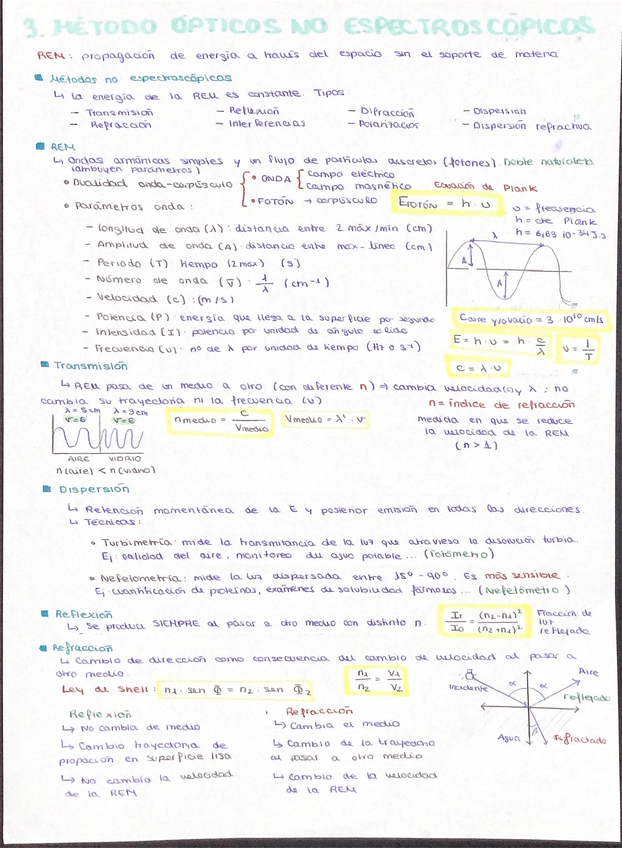 3. MÉTODO ÓPTICOS NO ESPECTROSCÓPICOS
REM: propagación de energía a través del espacio sin el soporte de materia
Métodos no espectroscópicos
↳ La energía de la REM es constante. Tipos
- Transmisión - Reflexión - Difracción - Dispersión
- Refracción - Interferencias - Polarización - Dispersión refractiva.
REM
↳ Ondas armónicas simples y un flujo de partículas discretas (fotones). Doble naturaleza
(atribuyen parámetros)
• Dualidad onda-corpúsculo { • ONDA { campo eléctrico
campo magnético
• FOTÓN → corpúsculo
Ecuación de Plank
E FOTÓN = h · υ
υ = frecuencia
h = cte Plank
h = 6,63 10-34 J.s
• Parámetros onda:
- Longitud de onda (λ): distancia entre 2 máx/mín (cm)
- Amplitud de onda (A): distancia entre máx-línea (cm)
- Periodo (T): tiempo (2 máx) (s)
- Número de onda (ν̅): 1/λ (cm⁻¹)
- Velocidad (c): (m/s)
- Potencia (P): energía que llega a la superficie por segundo
- Intensidad (I): potencia por unidad de ángulo sólido
- Frecuencia (υ): nº de λ por unidad de tiempo (Hz o s⁻¹)
λ
A
A
C aire y/o vacío = 3 · 10¹⁰ cm/s
E = h · υ = h · c/λ
υ = 1/T
c = λ · υ
Transmisión
↳ REM pasa de un medio a otro (con diferente n) ⇒ cambia velocidad (c) y λ; no
cambia su trayectoria ni la frecuencia (υ).
λ = 5 cm λ = 3 cm
V = 6 V = 6
AIRE VIDRIO
n (aire) < n (vidrio)
n medio = c / V medio
V medio = λ' · v
n = índice de refracción
medida en que se reduce
la velocidad de la REM
(n > 1)
Dispersión
↳ Retención momentánea de la E y posterior emisión en todas las direcciones.
↳ Técnicas:
• Turbimetría: mide la transmitancia de la luz que atraviesa la disolución turbia.
Ej: calidad del aire, monitoreo del agua potable... (Fotómetro)
• Nefelometría: mide la luz dispersada entre 15º - 90º. Es más sensible.
Ej: cuantificación de proteínas, exámenes de solubilidad fármacos... (Nefelómetro)
Reflexión
↳ Se produce SIEMPRE al pasar a otro medio con distinto n.
Ir/I0 = (n2-n1)²/(n2+n1)²
Fracción de
luz
reflejada
Refracción
↳ Cambio de dirección como consecuencia del cambio de velocidad al pasar a
otro medio.
Ley de Snell: n1 · sen Φ = n2 · sen Φ2
n1/n2 = V1/V2
Incidente
α α
Aire
reflejado
Agua
β
Refractado
Reflexión
↳ No cambia de medio
↳ Cambio trayectoria de
propación en superficie lisa
↳ No cambia la velocidad
de la REM
Refracción
↳ Cambia el medio
↳ Cambio de la trayectoria
al pasar a otro medio
↳ Cambio de la velocidad
de la REM